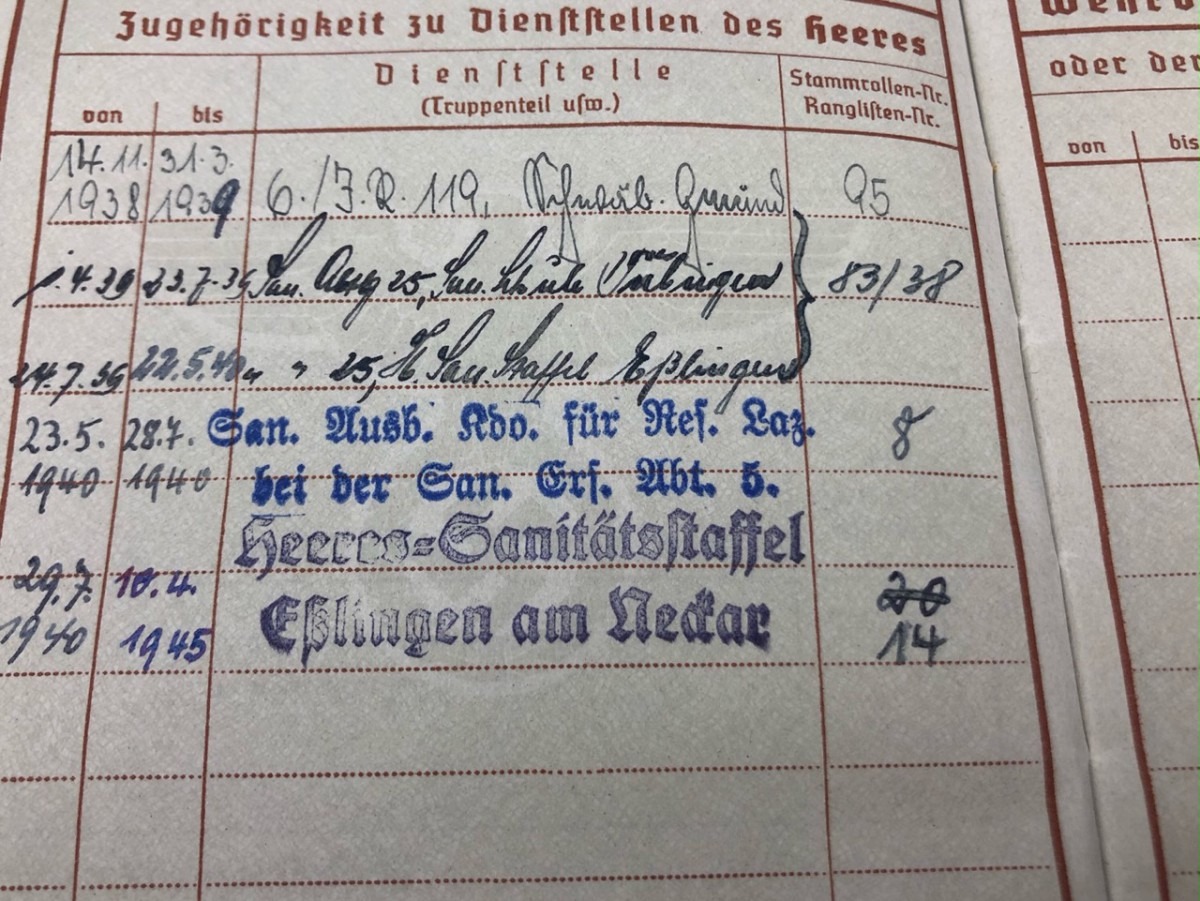 Zugehörigkeit zu Dienststellen des Heeres
von bis Dienststelle Stammrollen-Nr.
(Truppenteil usw.) Ranglisten-Nr.
14.11. 31.3.
1938 1939 6./J.R. 119, Schwäb. Gmünd 95
1.4.39 23.7.39 San. Abtg 25, San. Schule Tübingen 83/38
24.7.39 22.5.40 " " 25, H. San. Staffel Eßlingen
23.5. 28.7. San. Ausb. Kdo. für Res. Laz. 8
1940 1940 bei der San. Ers. Abt. 5.
Heeres=Sanitätsstaffel
29.7. 10.4. 20
1940 1945 Eßlingen am Neckar 14
oder der
von bis